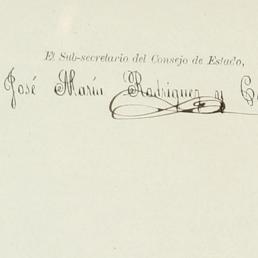 El Sub-secretario del Consejo de Estado,
José María Rodriguez y